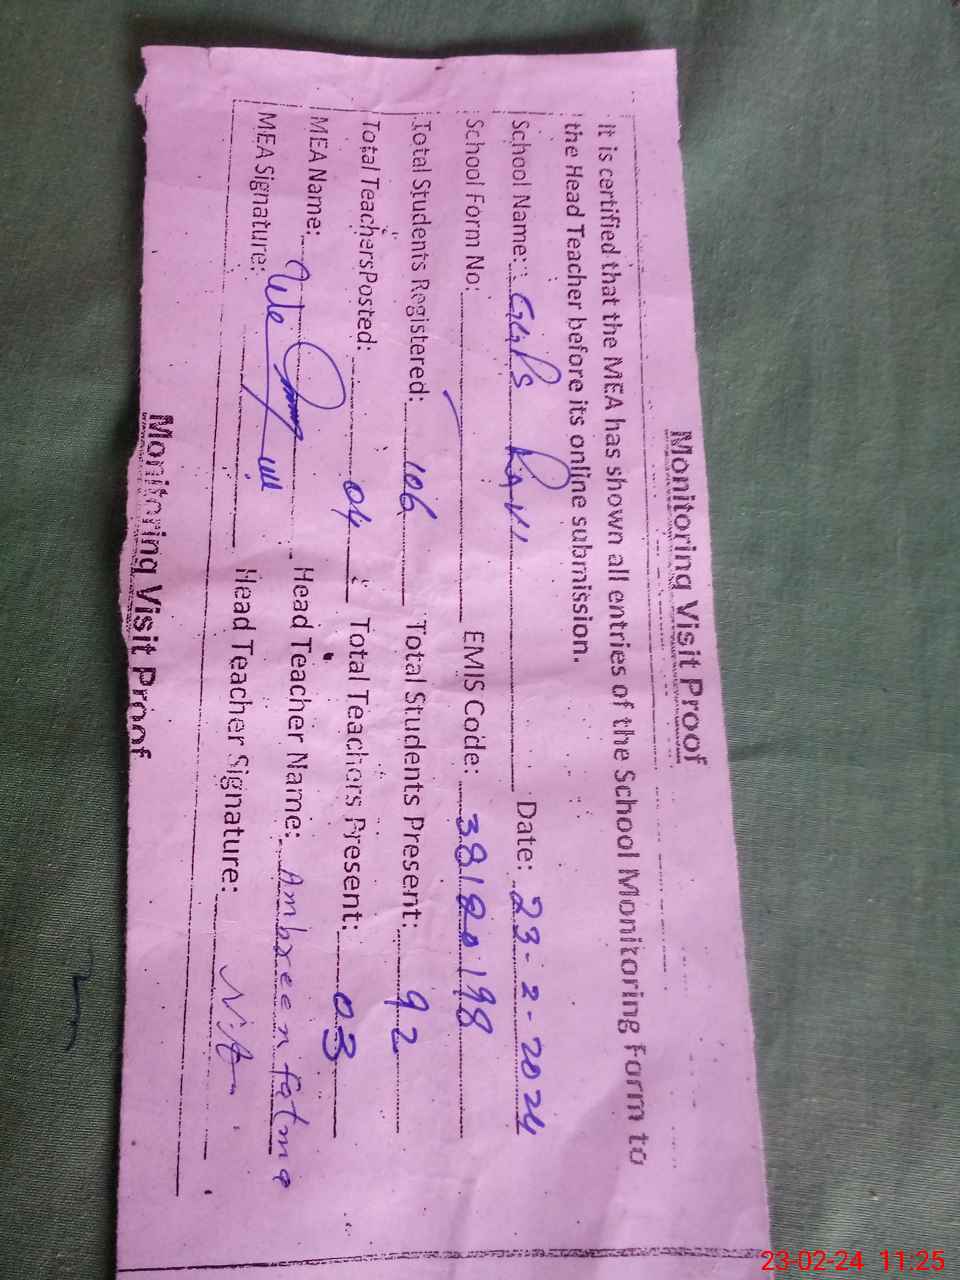 Monitoring Visit Proof
It is certified that the MEA has shown all entries of the School Monitoring Form to
the Head Teacher before its online submission.
School Name: GGPS Date: 23-2-2024
School Form No: EMIS Code: 38120198
Total Students Registered: 106 Total Students Present: 92
Total Teachers Posted: 04 Total Teachers Present: 03
MEA Name: Head Teacher Name: Ambreen fatma
MEA Signature: Head Teacher Signature:
Monitoring Visit Proof
23-02-24 11:25